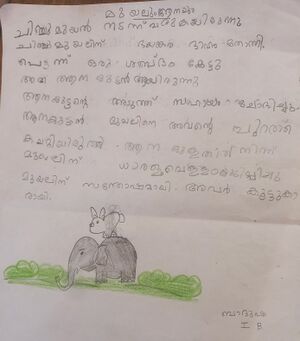 മുയലും ആനയും
ചിഞ്ചുമുയൽ നടന്ന് വരുകയായിരുന്നു
ചിഞ്ചുമുയലിന് ഭയങ്കര ദാഹം തോന്നി.
പെട്ടന്ന് ഒരു ശബ്ദം കേട്ടു
അത് ആന കുട്ടൻ ആയിരുന്നു
ആനകുട്ടന്റെ അടുത്ത് സഹായം ചോദിച്ചു
ആനകുട്ടൻ മുയലിനെ അവന്റെ പുറത്ത്
കയറ്റിയിരുത്തി. ആന കുളത്തിൽ നിന്ന്
മുയലിന് ധാരാളം വെള്ളം
മുയലിന് സന്തോഷമായി. അവർ കൂട്ടുകാ
രായി.
I B